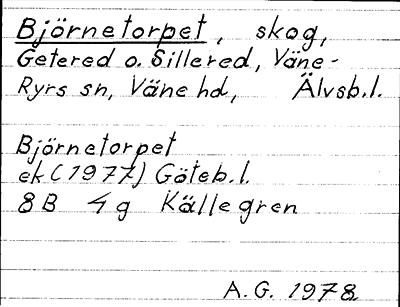 Björnetorpet, skog,
Getered o. Sillered, Väne-
Ryrs sn, Väne hd, Älvsb.l.
Björnetorpet
ek (1977) Göteb.l.
8B 4g Källegren
A.G. 1978